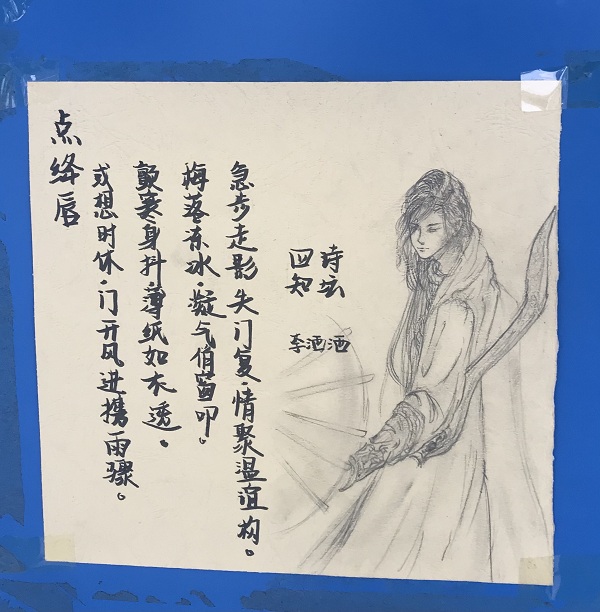 点绛唇
或想时休，门开风进携雨骤。
颤寒身抖，薄纸如衣透。
梅落东冰，凝气俏留叩。
急步走影失门复，情聚温谊构。
四知
诗坛
李洒洒